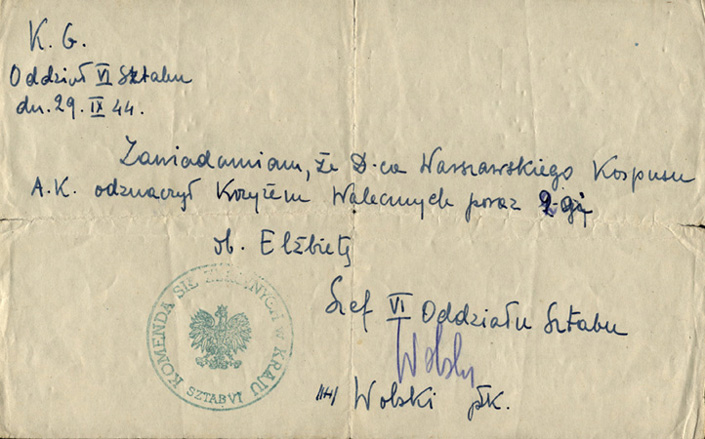 K. G.
Oddział VI Sztabu
dn. 29. IX 44.
Zawiadamiam, że D-ca Warszawskiego Korpusu
A.K. odznaczył Krzyżem Walecznych poraz 2-gi
ob. Elżbietę
Szef VI Oddziału Sztabu
Wolski
/-/ Wolski płk.
KOMENDA SIŁ ZBROJNYCH W KRAJU
SZTAB VI